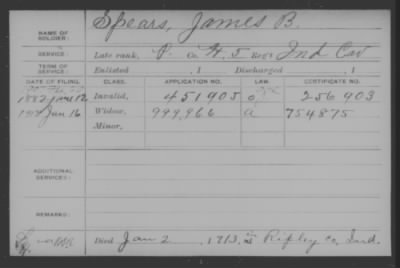 NAME OF SOLDIER: Spears, James B.
SERVICE: Late rank, P. Co. H. 5 Reg't Ind Cav
TERM OF SERVICE: Enlisted , 1 Discharged , 1
DATE OF FILING. CLASS. APPLICATION NO. LAW. CERTIFICATE NO.
1882 June 12 Invalid, 451905 256903
Jan 16 Widow, 999,966 a 754875
Minor,
ADDITIONAL SERVICES:
REMARKS:
Died Jan 2, 1913, at Ripley Co, Ind.